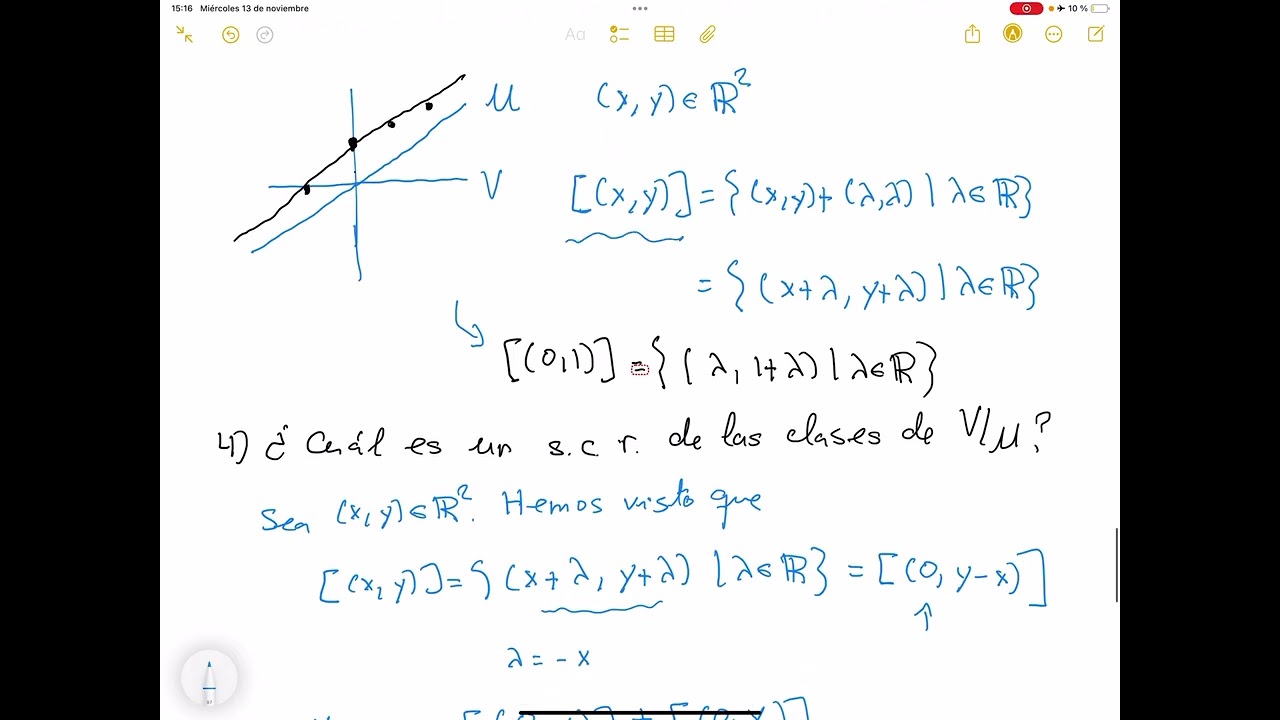 15:16 Miércoles 13 de noviembre
10 %
Aa
U (x, y) ∈ ℝ²
V [(x,y)] = {(x,y) + (λ,λ) | λ ∈ ℝ}
= {(x+λ, y+λ) | λ ∈ ℝ}
[(0,1)] = {(λ, 1+λ) | λ ∈ ℝ}
4) ¿Cuál es un s.c.r. de las clases de V/U?
Sea (x,y) ∈ ℝ². Hemos visto que
[(x,y)] = {(x+λ, y+λ) | λ ∈ ℝ} = [(0, y-x)]
↑
λ = -x